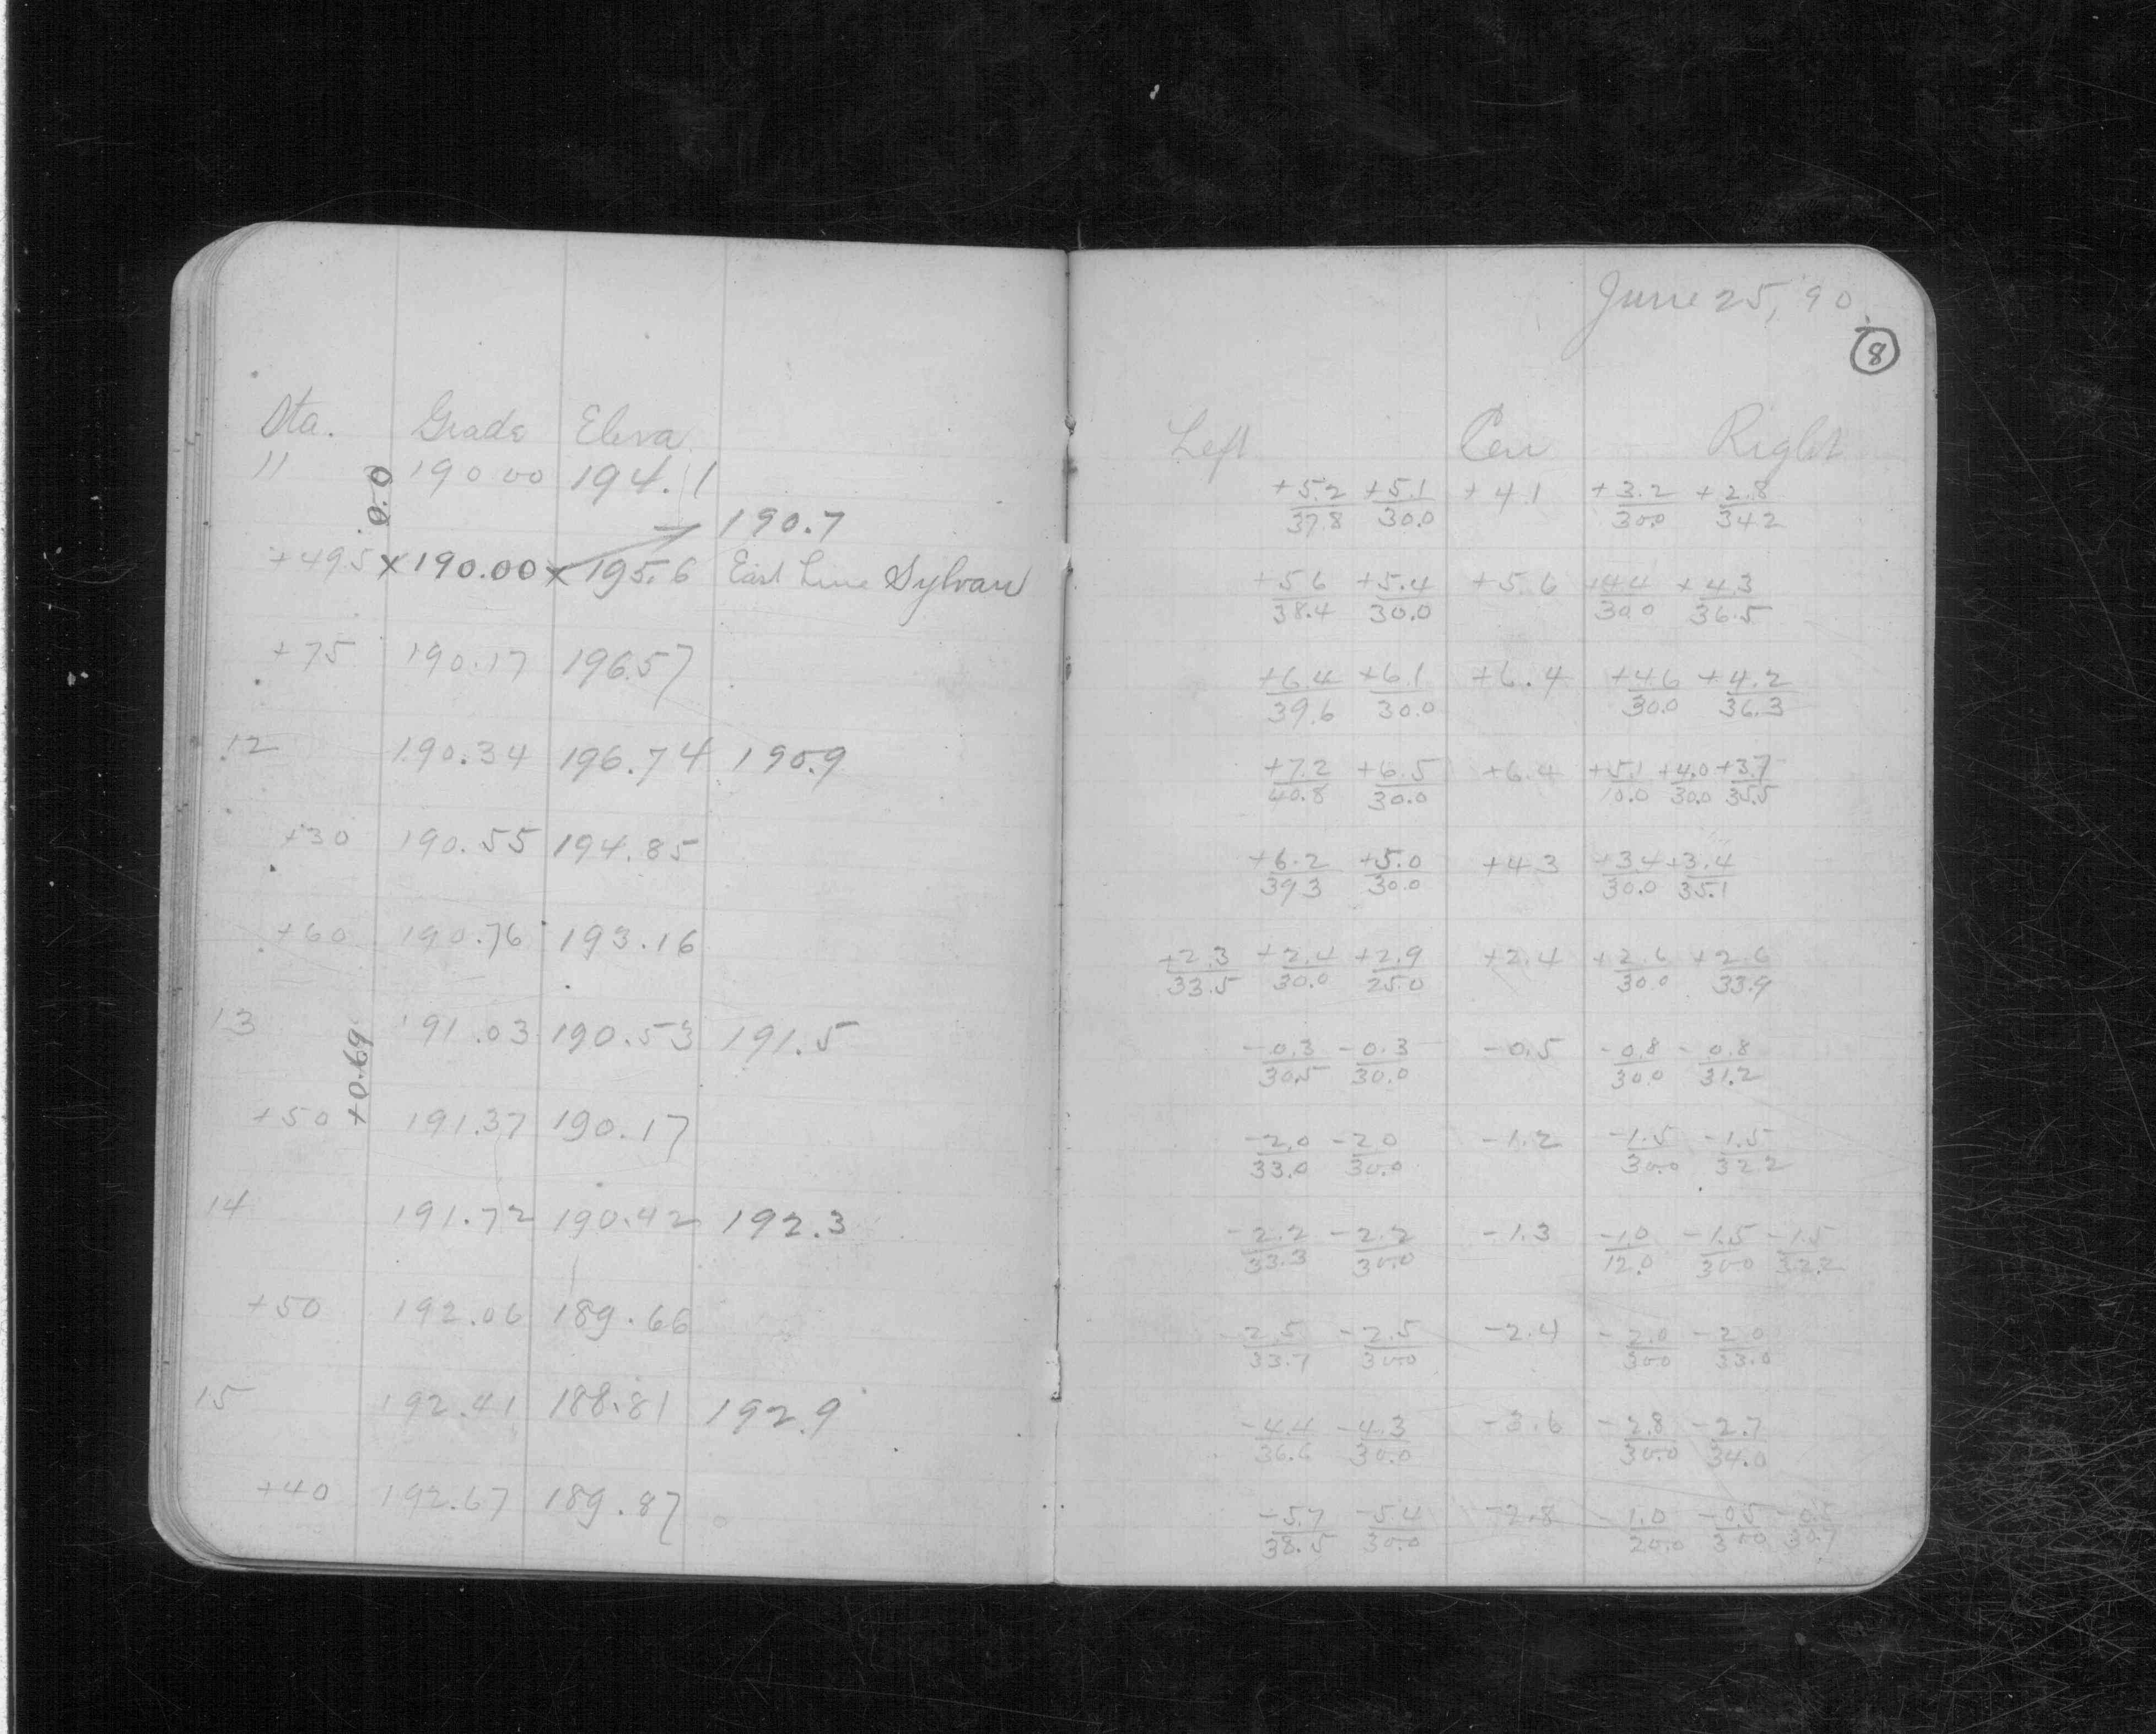 June 25, 90.
8
Sta. Grade Eleva. Left Cen Right
11 190.00 194.1 +5.2/37.8 +5.1/30.0 +4.1 +3.2/30.0 +2.8/34.2
0.0
190.7
+495 x 190.00 x 195.6 East Line Sylvan +5.6/38.4 +5.4/30.0 +5.6 +4.4/30.0 +4.3/36.5
+75 190.17 196.57 +6.4/39.6 +6.1/30.0 +6.4 +4.6/30.0 +4.2/36.3
12 190.34 196.74 190.9 +7.2/40.8 +6.5/30.0 +6.4 +5.1/10.0 +4.0/30.0 +3.7/35.5
+30 190.55 194.85 +6.2/39.3 +5.0/30.0 +4.3 +3.4/30.0 +3.4/35.1
+60 190.76 193.16 +2.3/33.5 +2.4/30.0 +2.9/25.0 +2.4 +2.6/30.0 +2.6/33.9
13 191.03 190.53 191.5 -0.3/30.5 -0.3/30.0 -0.5 -0.8/30.0 -0.8/31.2
+0.69
+50 191.37 190.17 -2.0/33.0 -2.0/30.0 -1.2 -1.5/30.0 -1.5/32.2
14 191.72 190.42 192.3 -2.2/33.3 -2.2/30.0 -1.3 -1.0/12.0 -1.5/30.0 -1.5/32.2
+50 192.06 189.66 -2.5/33.7 -2.5/30.0 -2.4 -2.0/30.0 -2.0/33.0
15 192.41 188.81 192.9 -4.4/36.6 -4.3/30.0 -3.6 -2.8/30.0 -2.7/34.0
+40 192.67 189.87 -5.7/38.5 -5.4/30.0 -2.8 -1.0/20.0 -0.5/30.0 -0.5/30.7